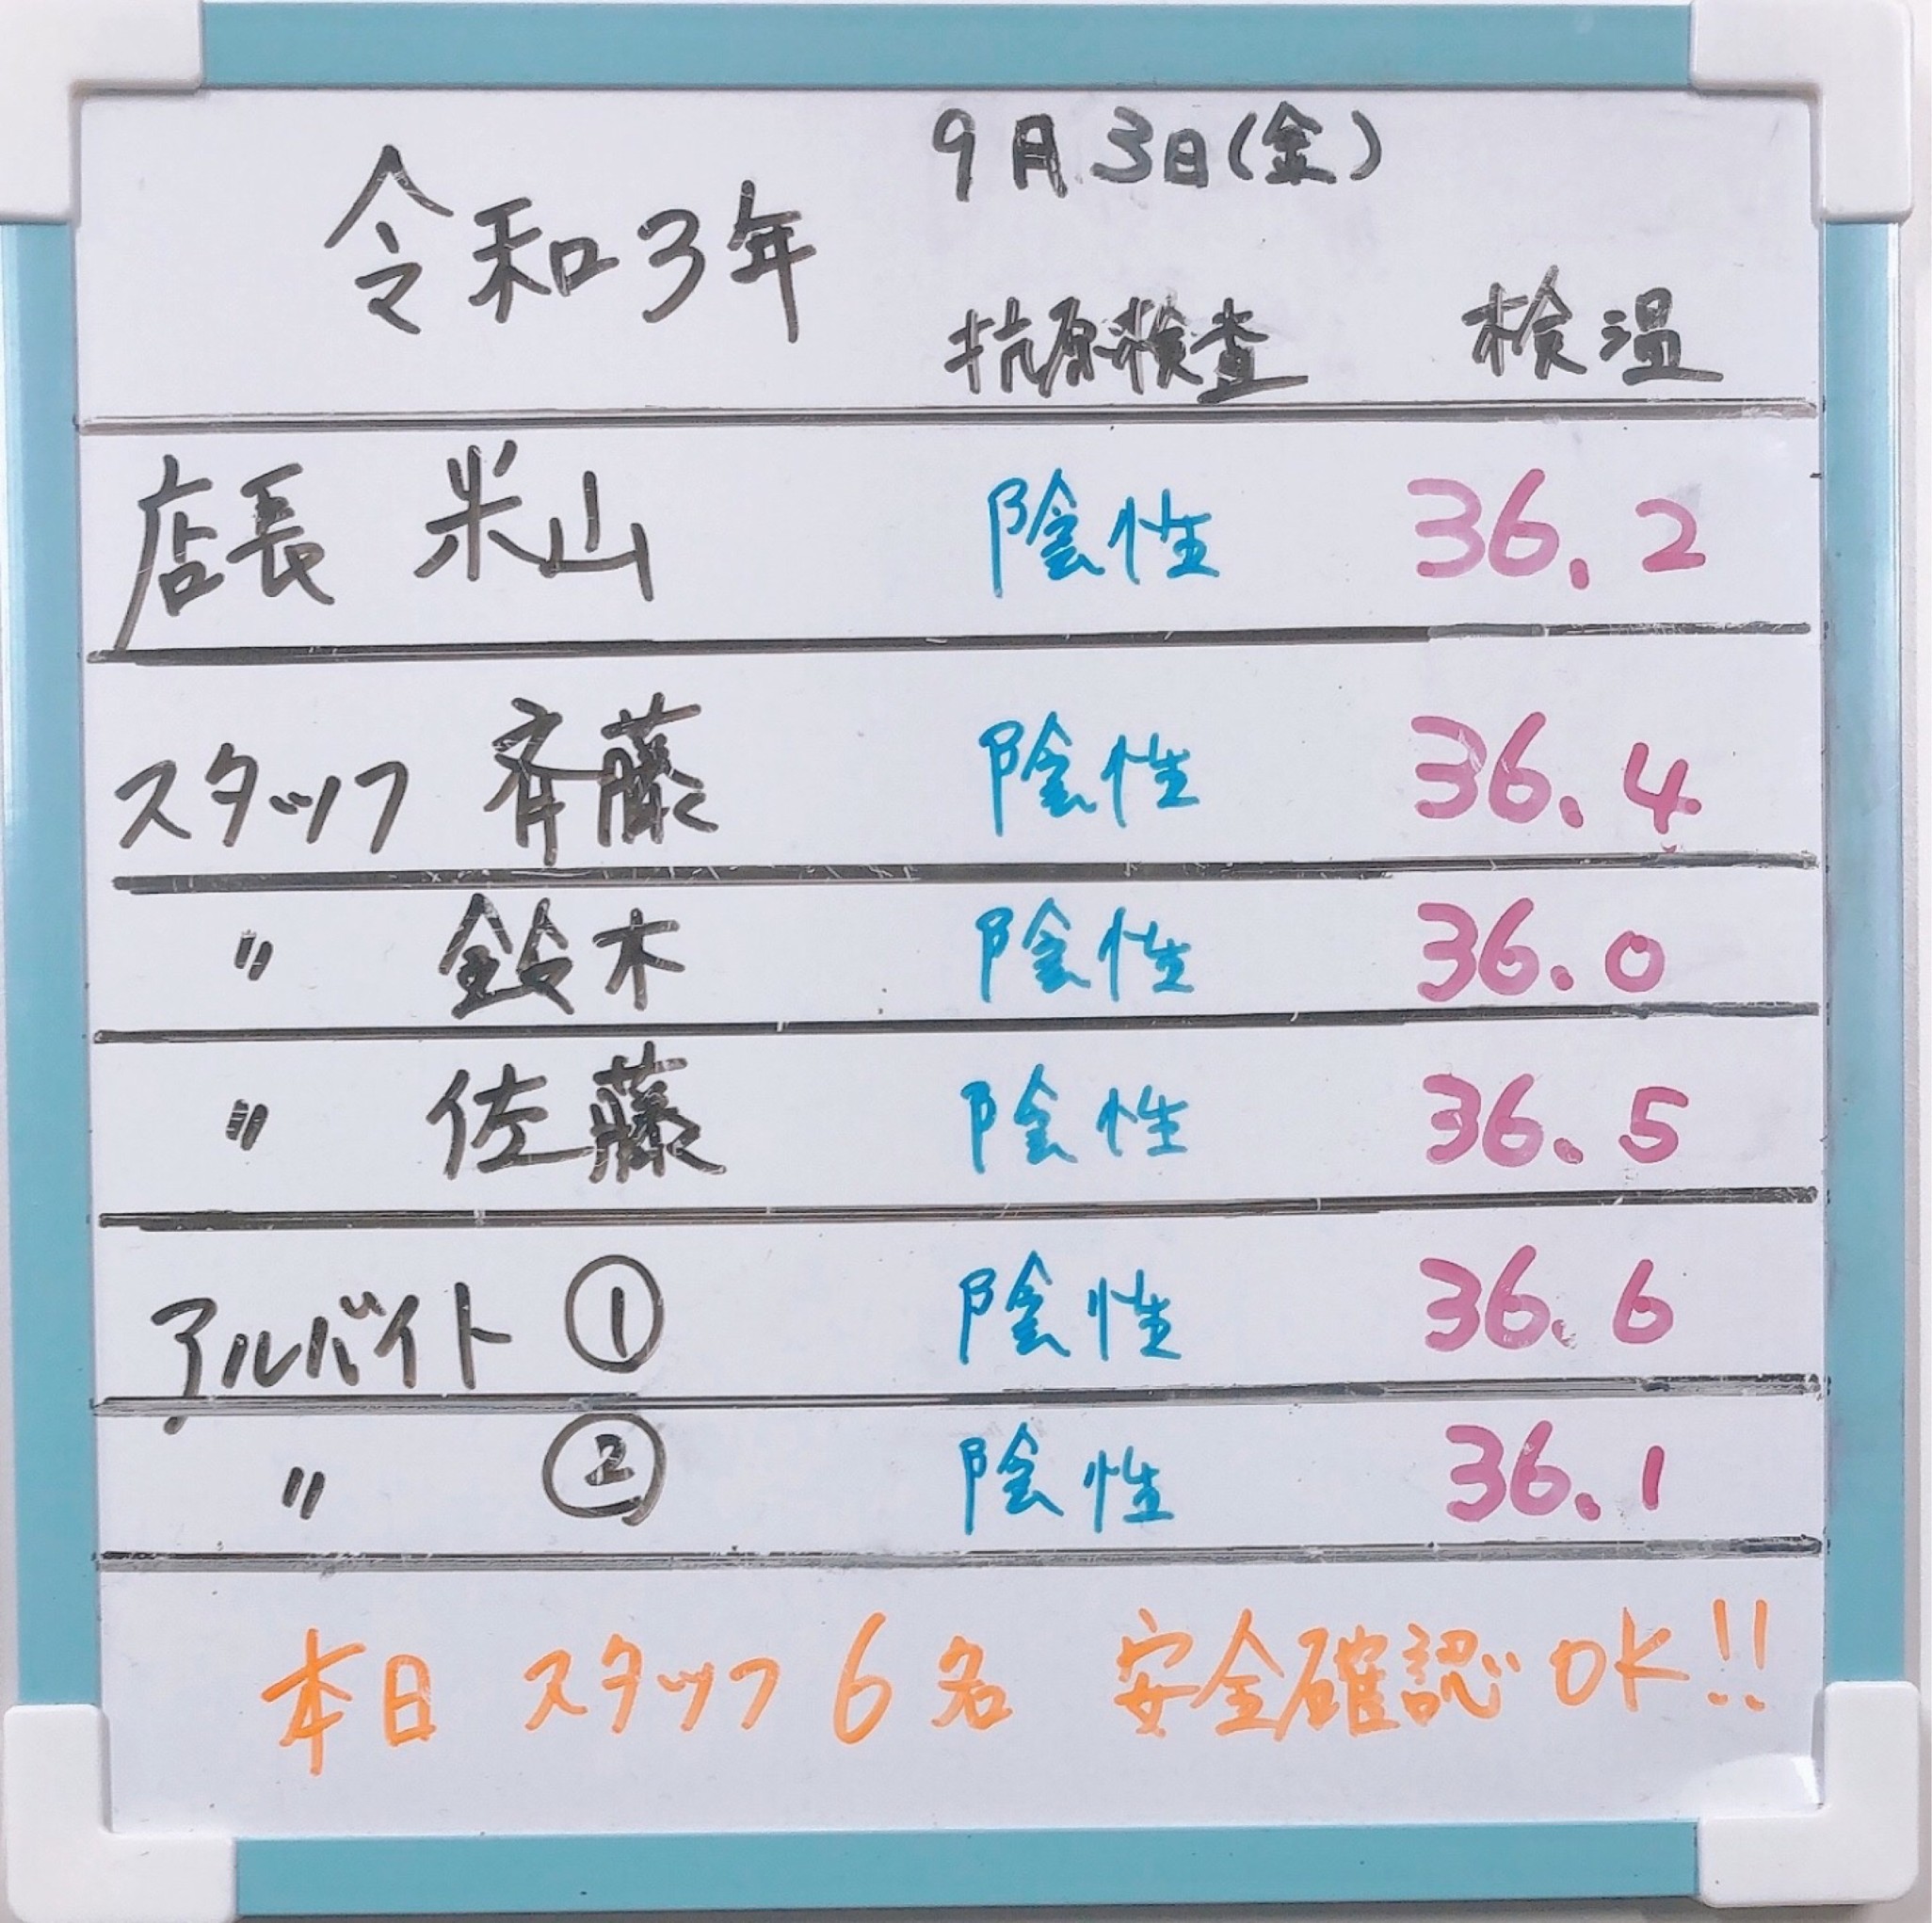 令和3年 9月3日(金)
抗原検査 検温
店長 米山 陰性 36.2
スタッフ 斉藤 陰性 36.4
〃 鈴木 陰性 36.0
〃 佐藤 陰性 36.5
アルバイト ① 陰性 36.6
〃 ② 陰性 36.1
本日 スタッフ 6名 安全確認OK!!